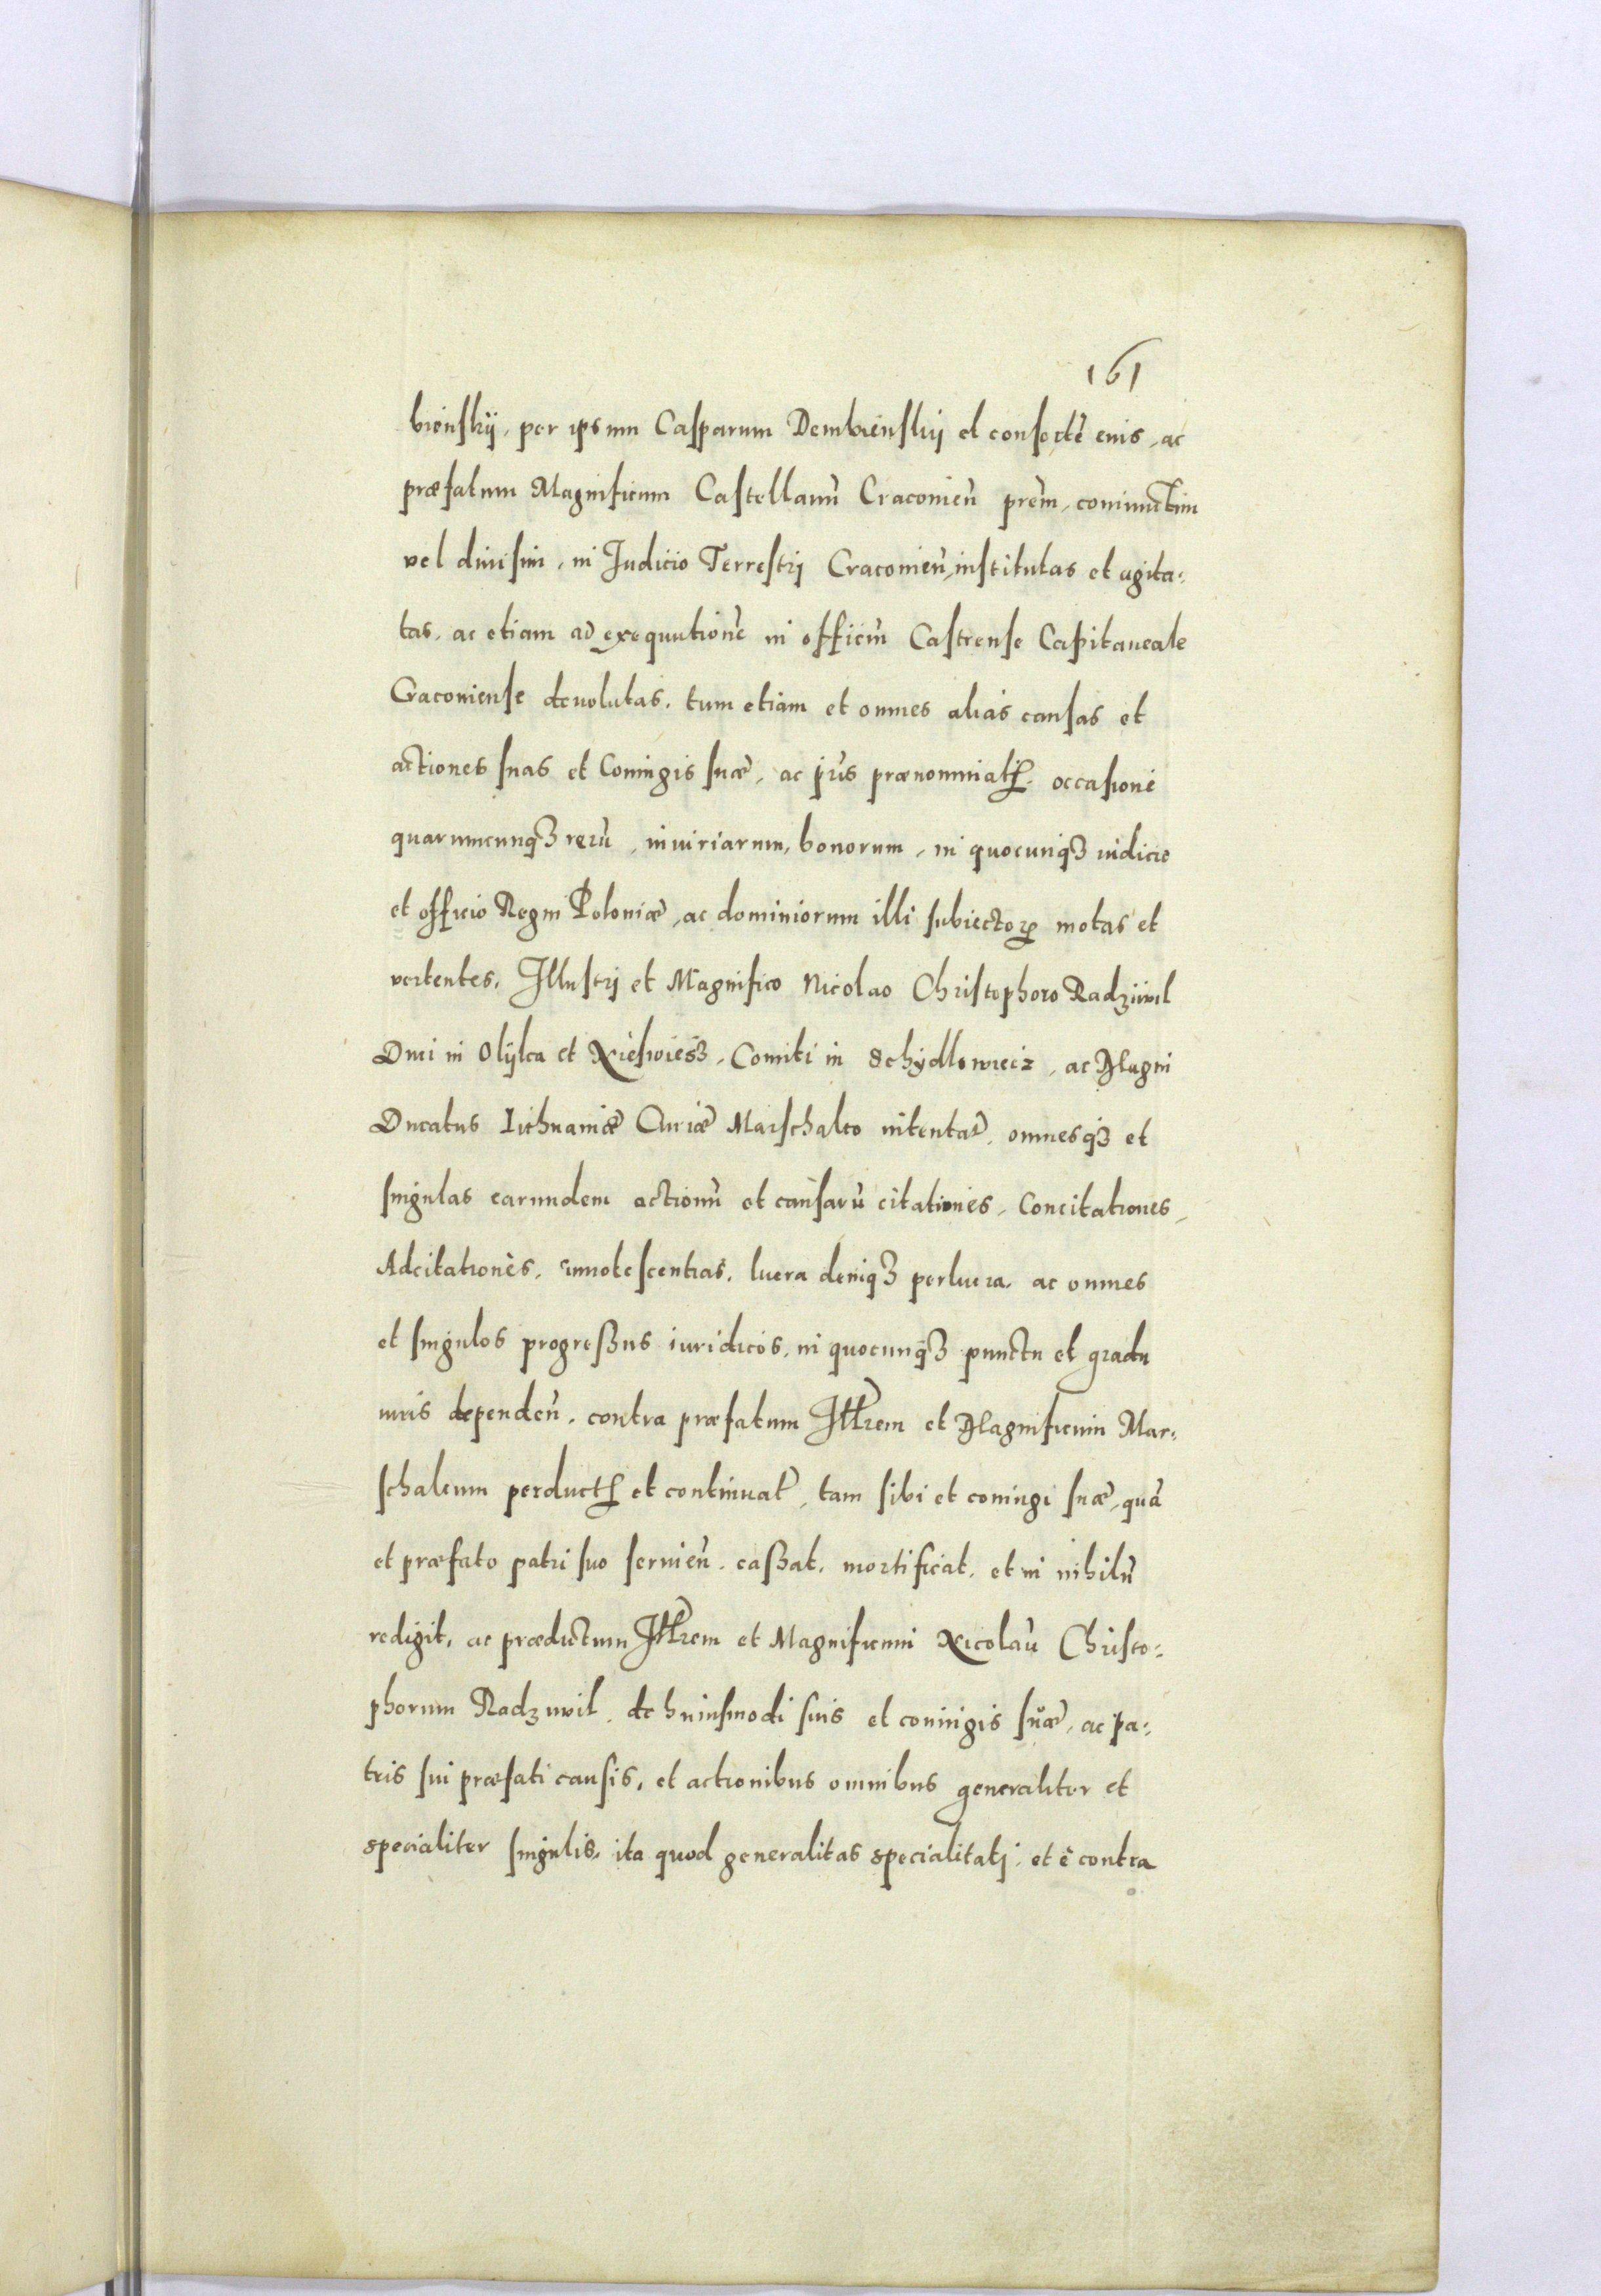 161
bienskij, per ipsum Casparum Dembienskij et consortē eius, ac
præfatum Magnificum Castellanū Cracouieñ prēm, coniunctim
vel diuisim, in Judicio Terrestrj Cracouieñ institutas et agita-
tas, ac etiam ad exequutionē in officiū Castrense Capitaneale
Cracouiense deuolutas. tum etiam et omnes alias causas et
actiones suas et Coniugis suæ, ac pr̄is prænominatꝭ. occasione
quarumcunqꝫ rerū, iniuriarum, bonorum, in quocunqꝫ iudicio
et officio Regni Poloniæ, ac dominiorum illi subiectoꝝ motas et
vertentes, Illustrj et Magnifico Nicolao Christophoro Radziuil
Duci in Olijka et Nieswiesꝫ, Comiti in Schydlowiecz, ac Magni
Ducatus Lithuaniæ Curiæ Marschalco intentat̄, omnesqꝫ et
singulas earundem actionū et causarū citationes, Concitationes,
Adcitationes, innotescentias, lucra deniqꝫ perlucra, ac omnes
et singulos progreßus iuridicos, in quocunqꝫ punctu et gradu
iuris dependeñ, contra præfatum Illr̄em et Magnificum Mar-
schalcum perductꝭ et continuat̄, tam sibi et coniugi suæ, quā
et præfato patri suo seruieñ. caßat, mortificat, et in nihilū
redigit, ac prædictum Illr̄em et Magnificum Nicolaū Christo-
phorum Radziuil, de huiusmodi suis et coniugis suæ, ac pa-
tris sui præfati causis, et actionibus omnibus generaliter et
specialiter singulis, ita quod generalitas specialitatj, et è contra